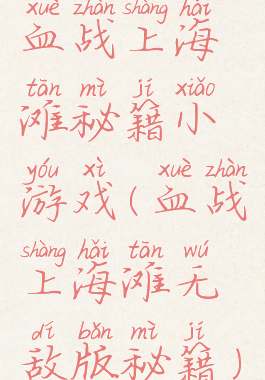 xuè zhàn shàng hǎi
血战上海
tān mì jí xiǎo
滩秘籍小
yóu xì xuè zhàn
游戏(血战
shàng hǎi tān wú
上海滩无
dí bǎn mì jí
敌版秘籍)